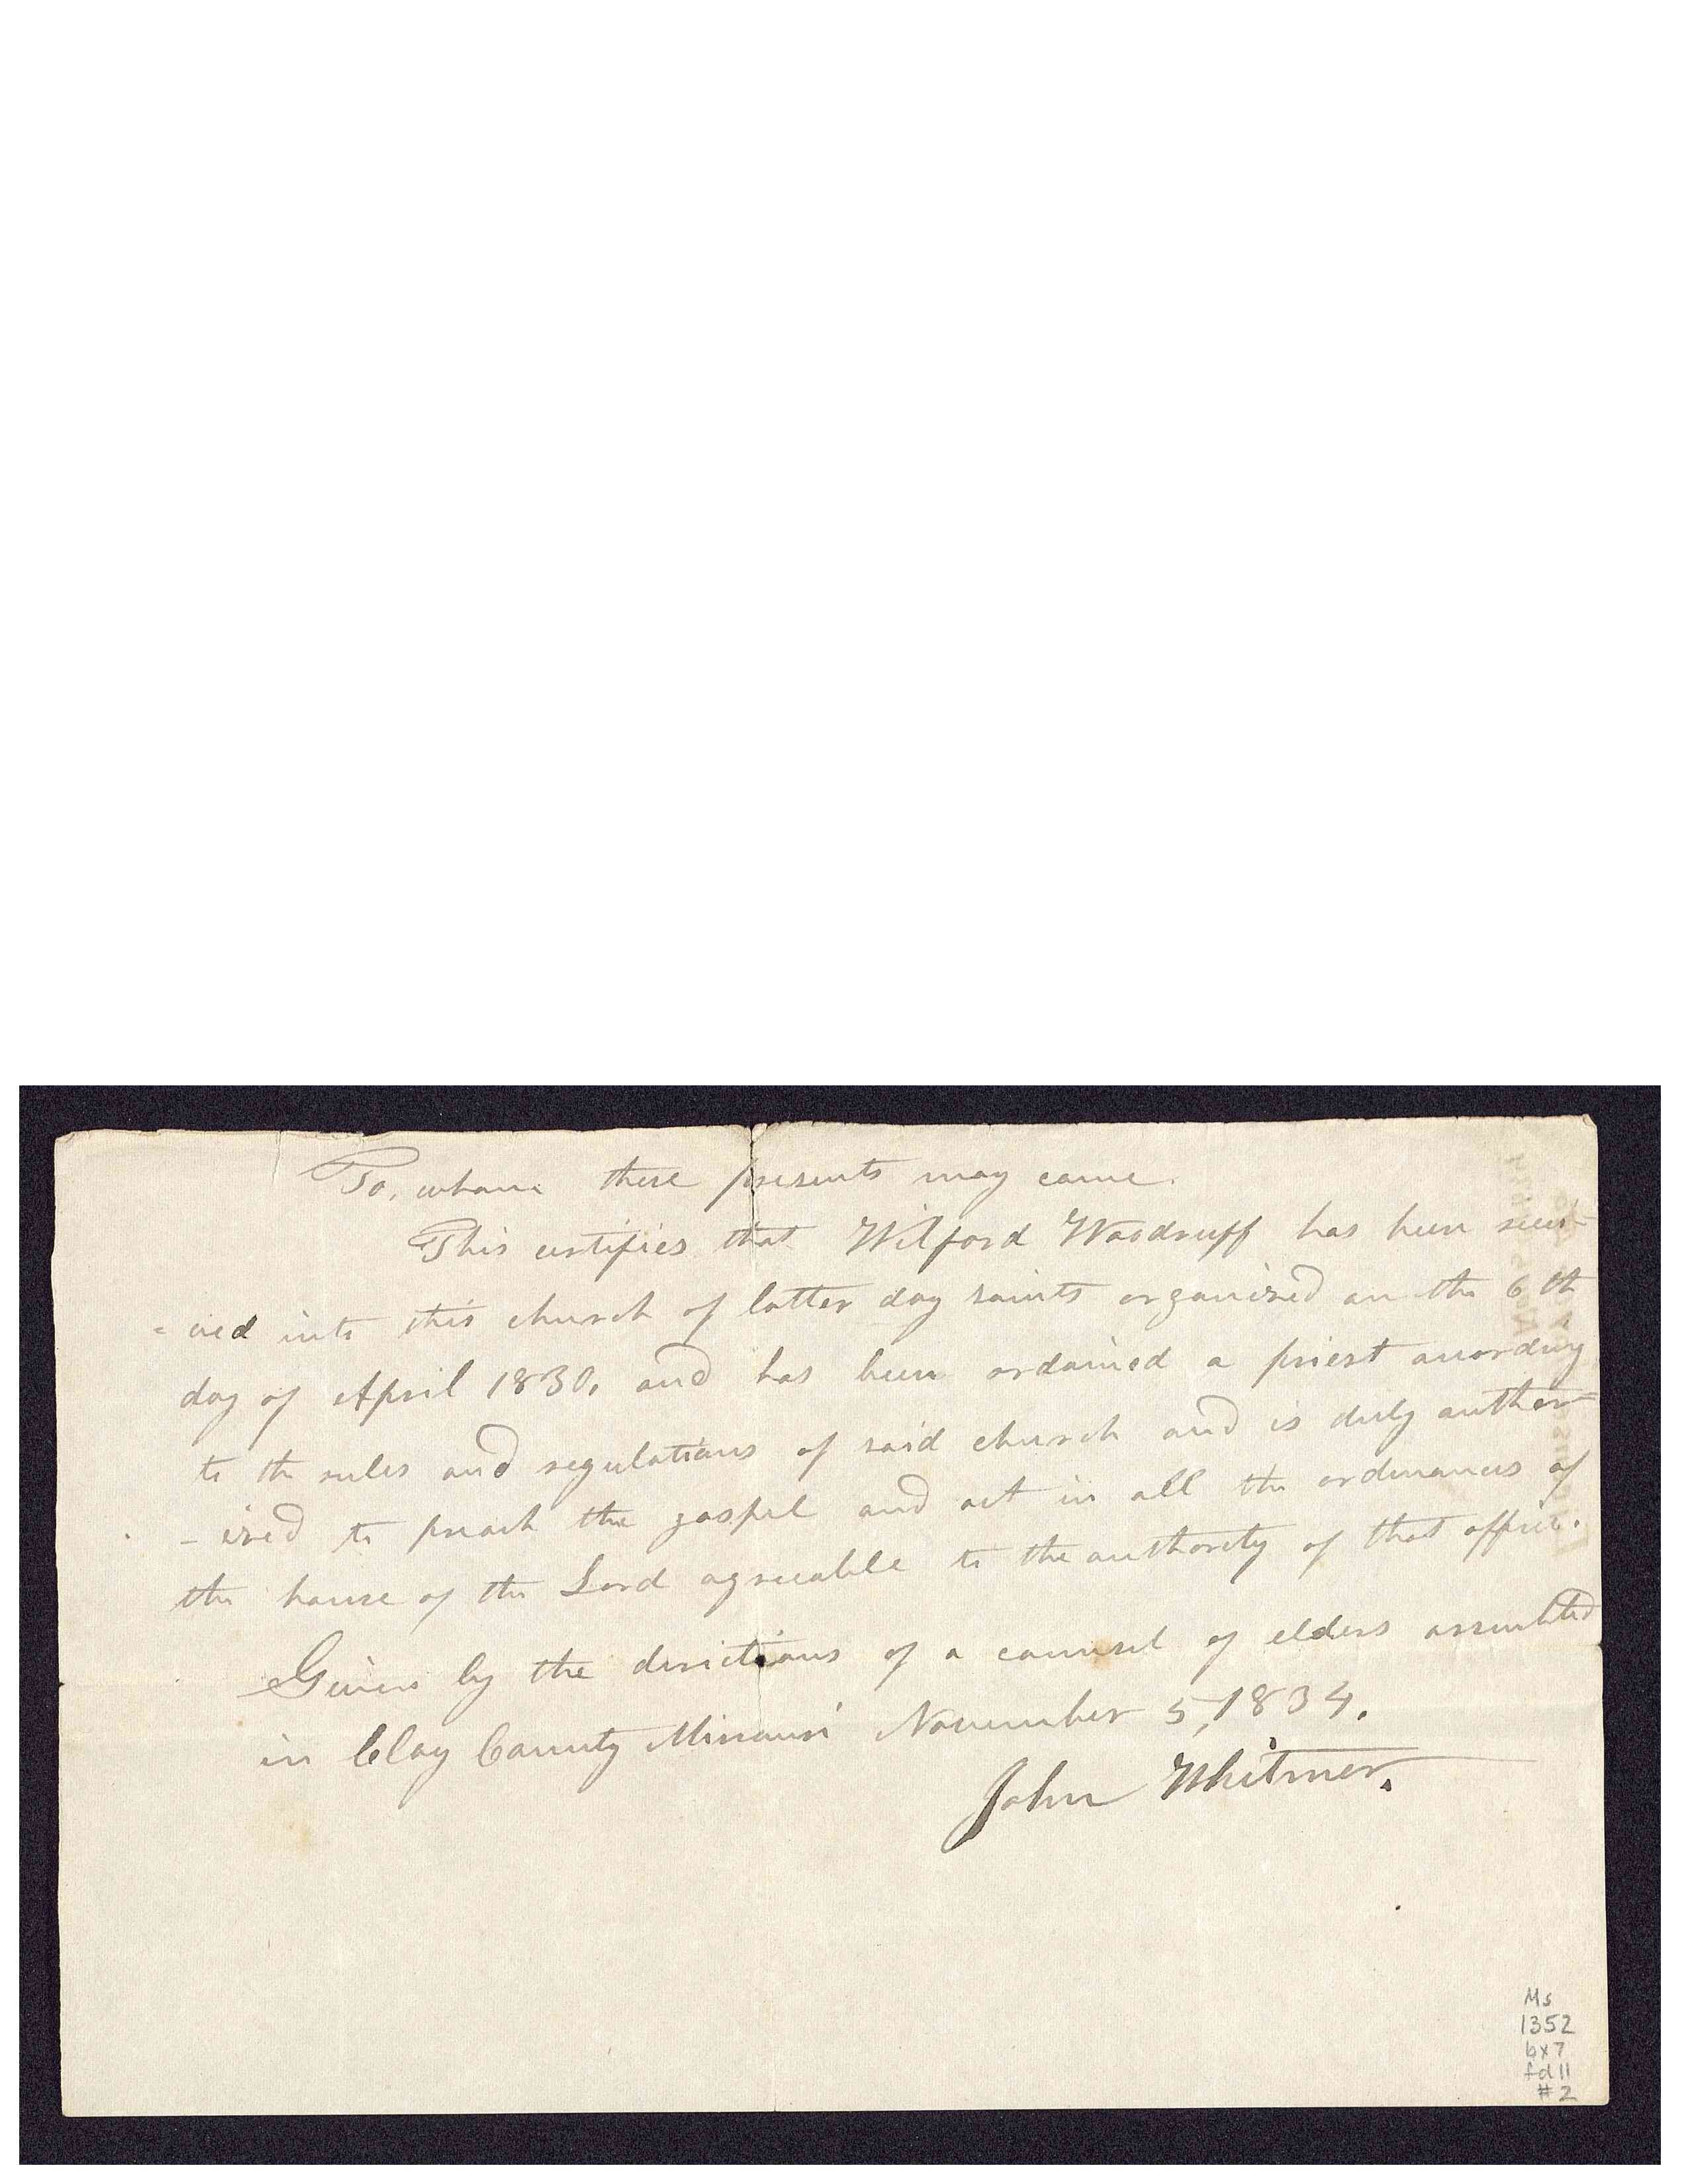 To, whom these presents may come.
This certifies that Wilford Woodruff has been recei=
=ved into this church of latter day saints organized on the 6th
day of April 1830, and has been ordained a priest according
to the rules and regulations of said church and is duly author=
-ized to preach the gospel and act in all the ordinances of
the house of the Lord agreeable to the authority of that office.
Given by the directions of a counsel of elders assembled
in Clay County Missouri November 5, 1834.
John Whitmer.
Ms
1352
bx7
fd11
#2